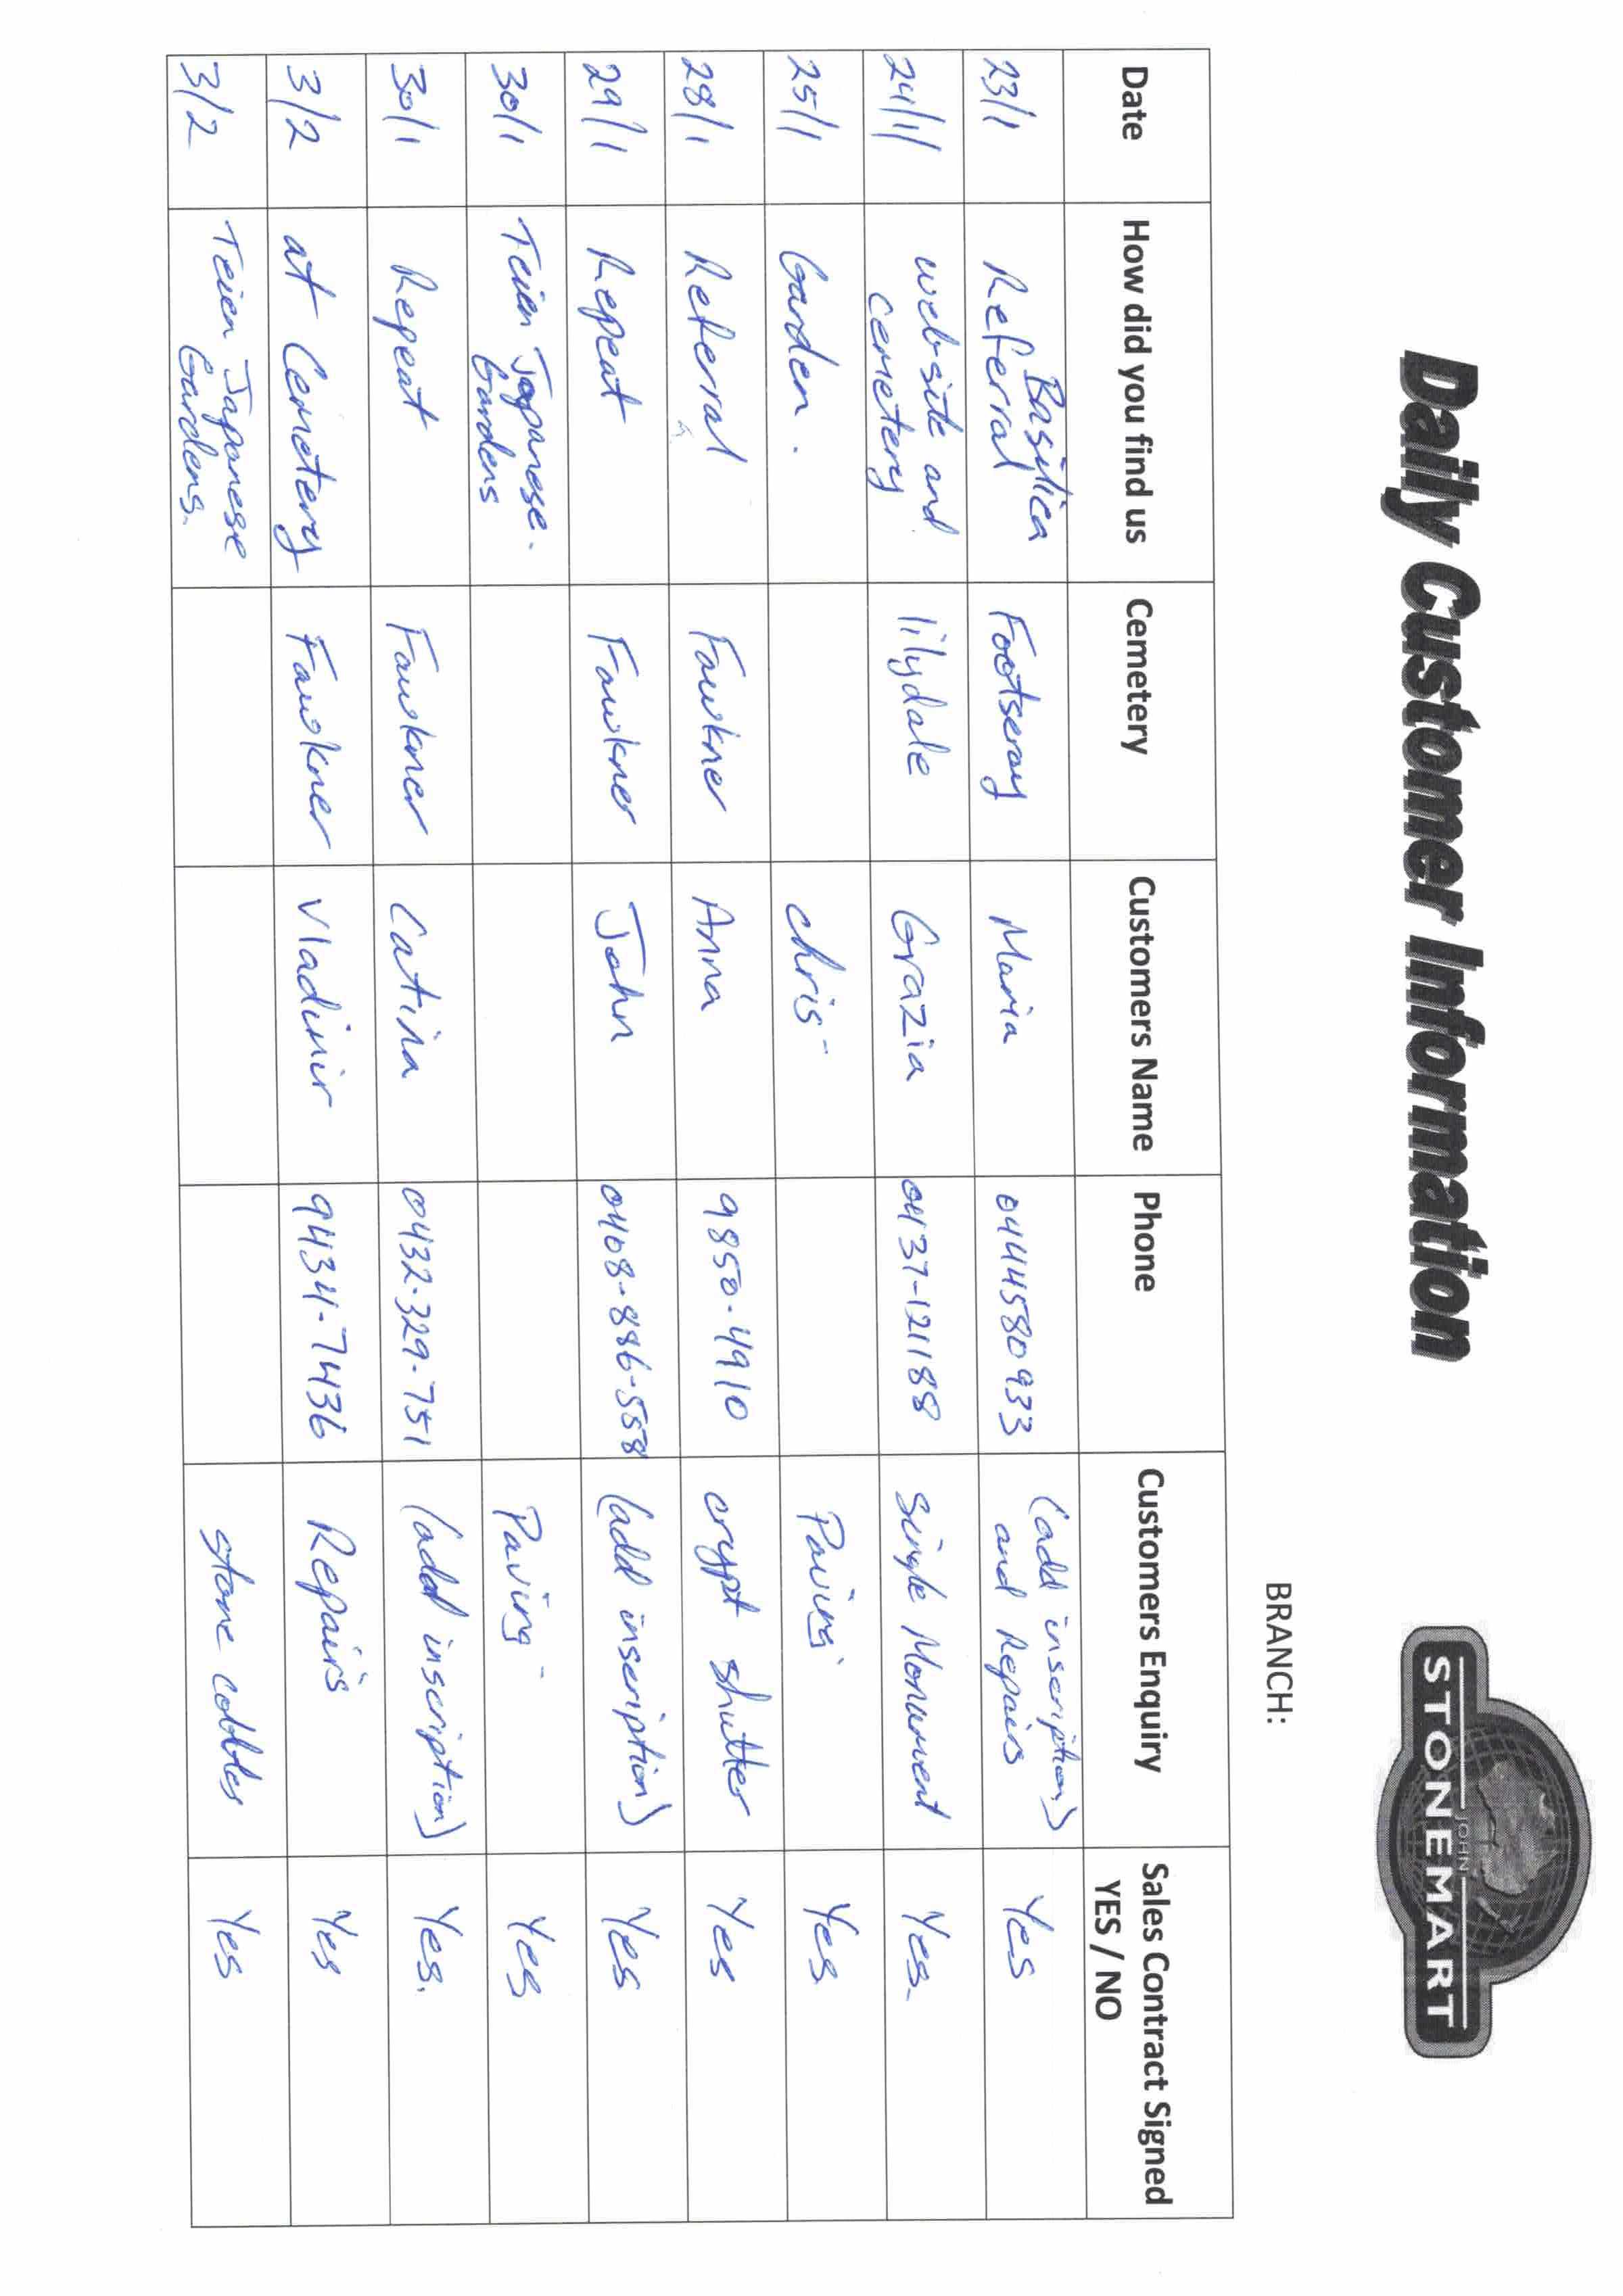 Daily Customer Information
JOHN
STONEMART
BRANCH:
Date How did you find us Cemetery Customers Name Phone Customers Enquiry Sales Contract Signed
YES / NO
23/1 Basilica Referral Footscray Maria 0444580933 (add inscription) and Repairs Yes
24/1/ website and cemetery lilydale Grazia 0437-121188 Single Monument Yes.
25/1 Garden. Chris - Paving Yes
28/1 Referral Fawkner Anna 9850-4910 crypt shutter Yes
29/1 Repeat Fawkner John 0408-886-558 (add inscription) Yes
30/1 Teien Japanese. Gardens Paving Yes
30/1 Repeat Fawkner Catina 0432-329-751 (add inscription) Yes.
3/2 at Cemetery Fawkner Vladimir 9434-7436 Repairs Yes
3/2 Teien Japanese Gardens. stone cobbles Yes